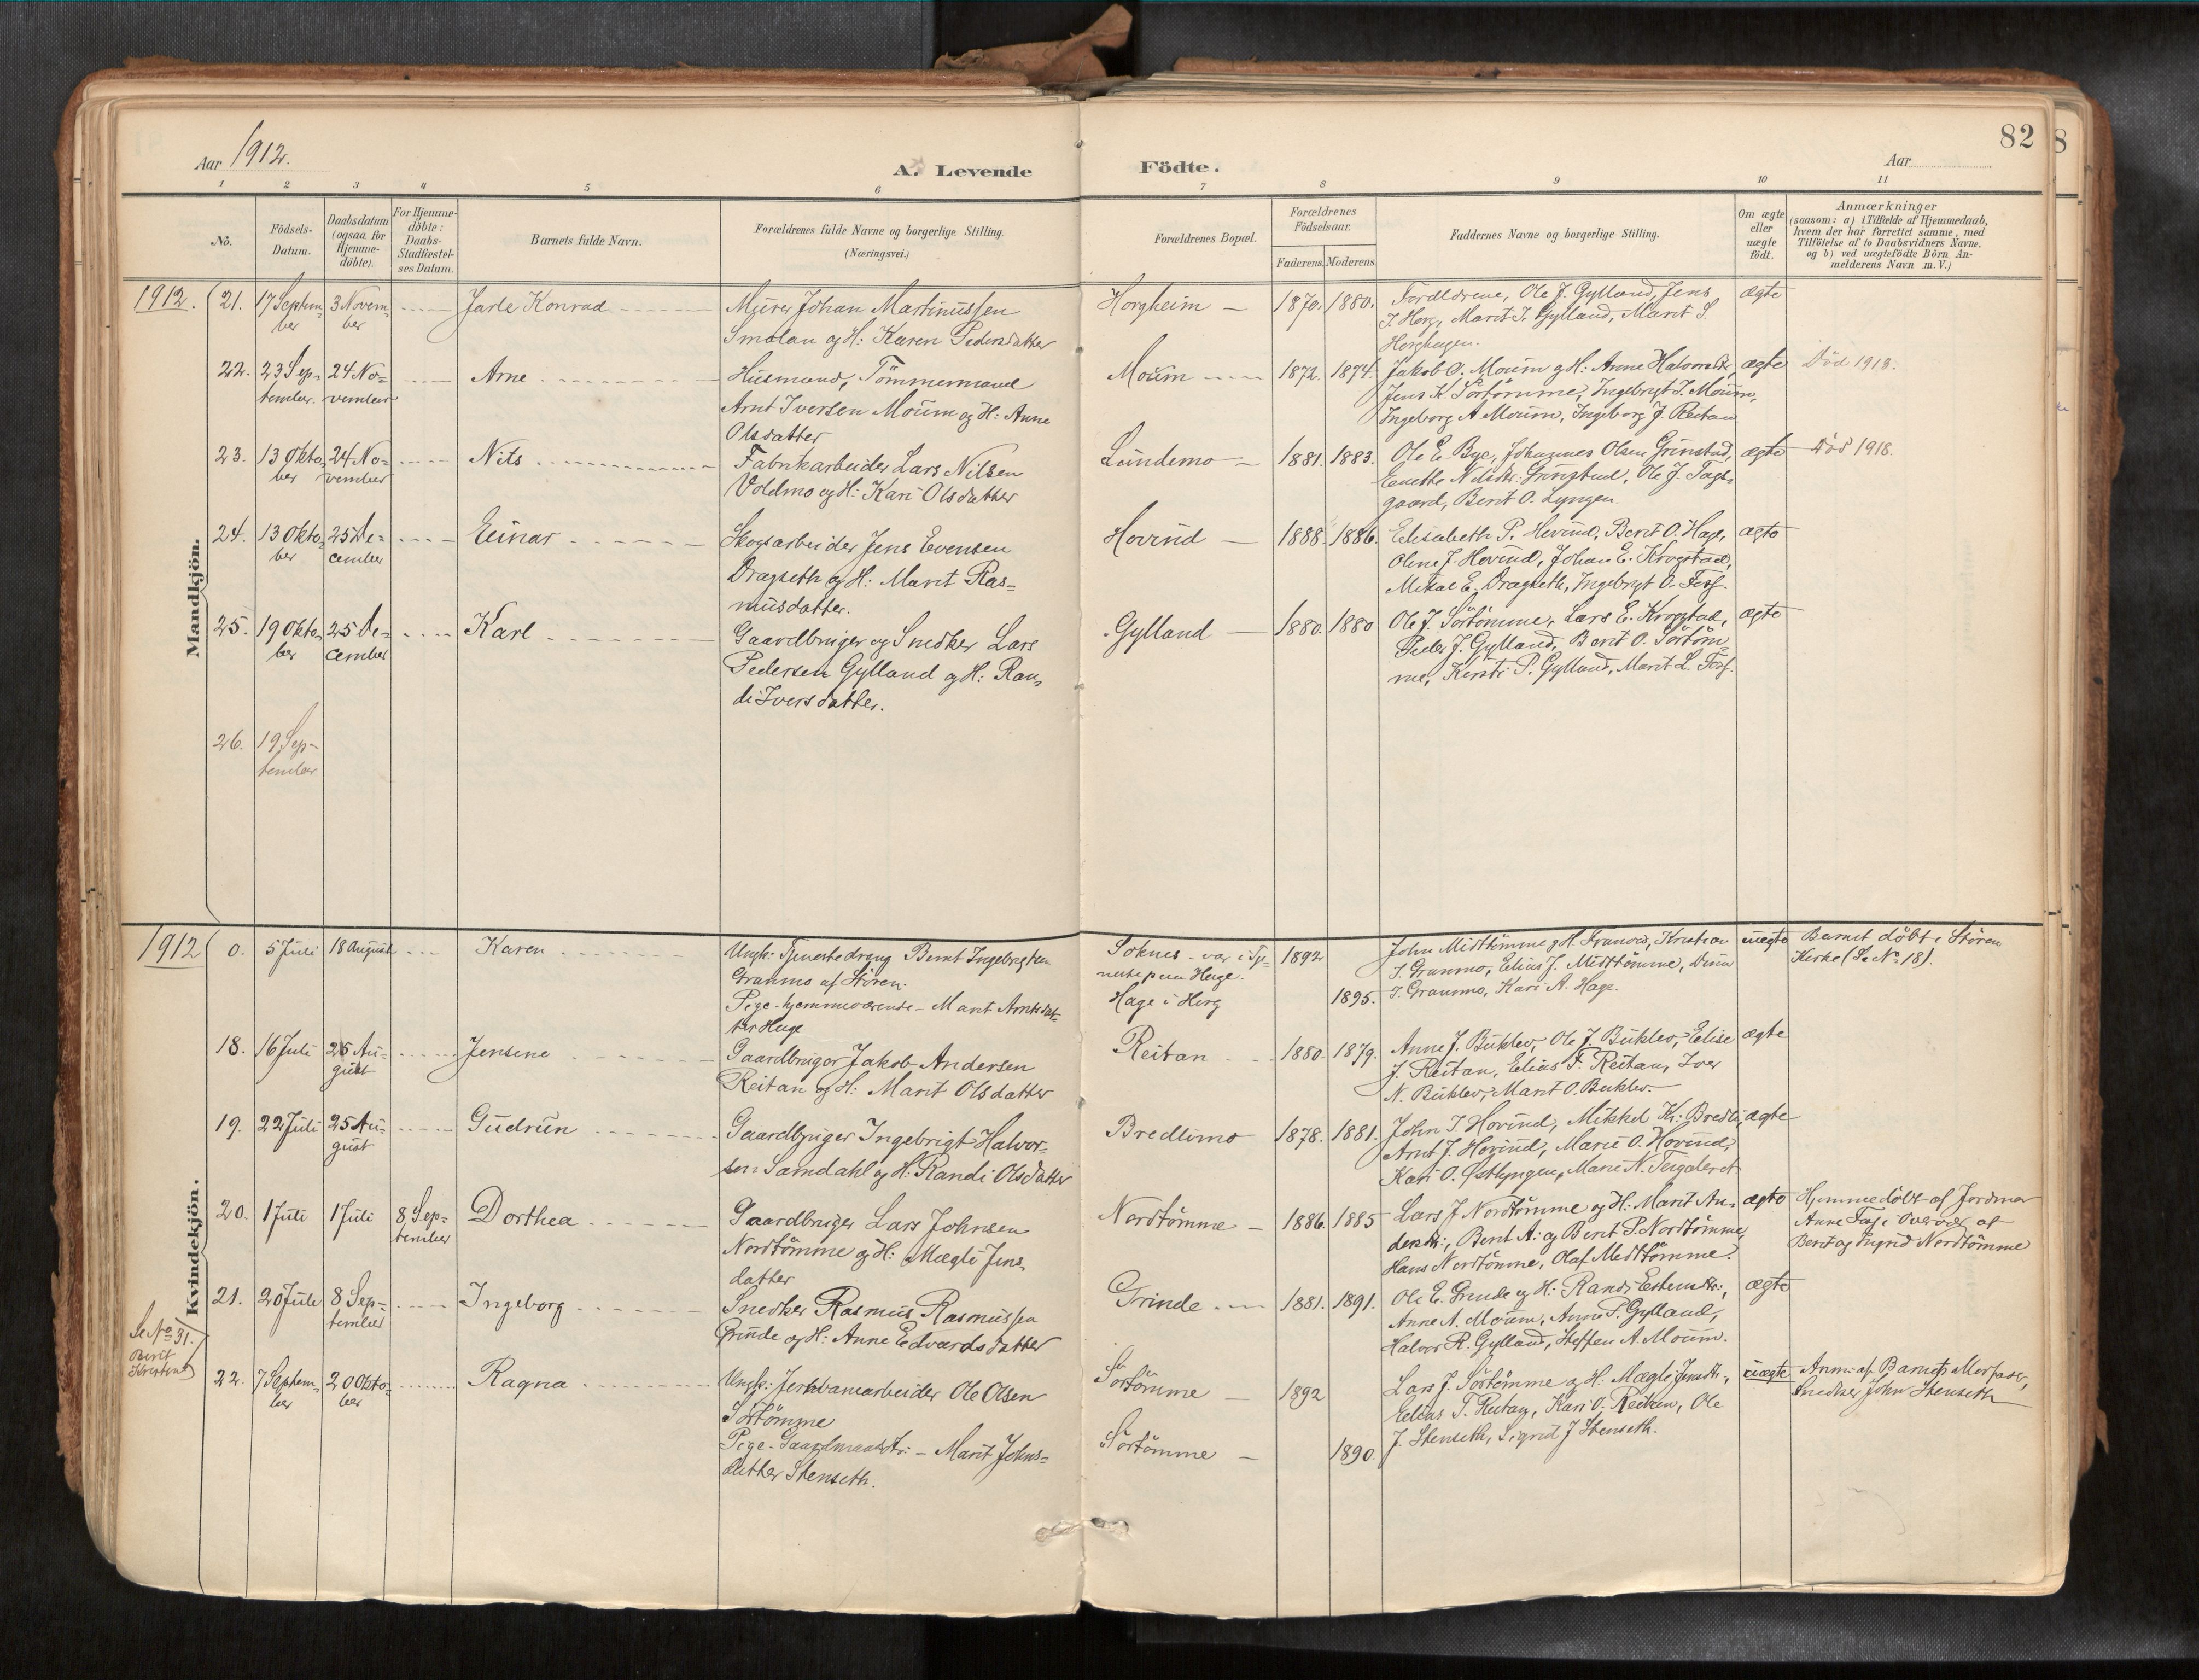 82
8
Aar 1912.
A. Levende Födte.
Aar
1 2 3 4 5 6 7 8 9 10 11
No.
Födsels-Datum.
Daabsdatum (ogsaa for Hjemme-döbte).
For Hjemme-döbte: Daabs-Stadfæstel-ses Datum.
Barnets fulde Navn.
Forældrenes fulde Navne og borgerlige Stilling.
(Næringsvei.)
Forældrenes Bopæl.
Forældrenes Födselsaar.
Faderens. Moderens.
Faddernes Navne og borgerlige Stilling.
Om ægte eller uægte födt.
Anmærkninger
(saasom: a) i Tilfælde af Hjemmedaab, hvem der har forrettet samme, med Tilföielse af to Daabsvidners Navne. og b) ved uægtefödte Börn An-melderens Navn m. V.)
Mandkjön.
1912. 21. 17 Septem-ber 3 Novem-ber Jarle Konrad
Murer Johan Martinussen
Smolan og H: Karen Pedersdatter
Horgheim 1870. 1880.
Forældrene, Ole J. Gylland, Jens
J. Horg, Marit J. Gylland, Marit S.
Horghagen.
ægte
22. 23 Sep-tember. 24 No-vember Arne
Husmand, Tömmermand
Arnt Iversen Moum og H: Anne
Olsdatter
Moum 1872. 1874.
Jakob O. Moum og H: Anne Halvorsdtr,
Jens K. Sörtömme, Ingebrigt J. Moum,
Ingeborg A Moum, Ingeborg J. Reitan
ægte
Död 1913.
23. 13 Okto-ber 24 No-vember Nils
Fabrikarbeider Lars Nilsen
Voldmo og H: Kari Olsdatter
Lundemo 1881. 1883.
Ole E. Bye, Johannes Olsen Grinstad,
Nilsdtr. Grinstad, Ole J. Fags-
gaard, Berit O. Lyngen.
ægte
Död 1918.
24. 13 Okto-ber 25 De-cember Einar
Skogsarbeider Jens Evensen
Dragseth og H: Marit Ras-
musdatter.
Hovind 1888. 1886.
Elisabeth P. Hovind, Berit O. Hage,
Oline J. Hovind, Johan E. Krogstad,
Mikal E. Dragseth, Ingebrigt O. Foss.
ægte
25. 19 Okto-ber 25 De-cember Karl
Gaardbruger og Snedker Lars
Pedersen Gylland og H: Ran-
di Iversdatter.
Gylland 1880. 1880
Ole J. Sörtömme, Lars E. Krogstad,
Peder J. Gylland, Berit O. Sörtöm-
me, Kirsti P. Gylland, Marit L. Foss.
ægte
26. 19 Sep-tember
Kvindekjön.
1912 0. 5 Juli 18 August Karen
Ungk: Tjenestedreng Bernt Ingebrigtsen
Granmo af Stören.
Pige hjemmeværende - Marit Arntsdat-
ter Hage
Soknes - var i Tje-
neste paa Hage.
Hage i Horg
1892
1895.
John Midttömme og H. Kristian
J. Granmo, Elias J. Midttömme,
J. Granmo, Kari A. Hage.
uægte
Barnet döbt i Stören
Kirke (Se No 18).
18. 16 Juli 25 Au-gust Jensine
Gaardbruger Jakob Andersen
Reitan og H: Marit Olsdatter
Reitan 1880. 1879.
Anne J. Buklev, Ole J. Buklev, Elise
J. Reitan, Elias F. Reitan, Iver
N. Buklev, Marit O. Buklev.
ægte
19. 22 Juli 25 Au-gust Gudrun
Gaardbruger Ingebrigt Halvor-
sen Samdahl og H: Randi Olsdatter
Bredlimo 1878. 1881.
John J. Hovind, Mikkel Kr: Bredli,
Arnt J. Hovind, Marie O. Hovind,
Kari O. Østlyngen, Marie N.
ægte
20. 1 Juli 1 Juli 8 Sep-tember Dorthea
Gaardbruger Lars Johnsen
Nordtömme og H: Mægli Jens-
datter
Nordtömme 1886. 1885
Lars J Nordtömme og H: Marit An-
dersdtr:, Berit A: og Berit P. Nordtömme,
Hans Nordtömme, Olaf Midttömme.
ægte
Hjemmedöbt af Jordmor
Anne Foss i Overvær af
Berit og Ingrid Nordtömme
21. 20 Juli 8 Sep-tember Ingeborg
Snedker Rasmus Rasmussen
Grinde og H: Anne Edvardsdatter
Grinde 1881. 1891.
Ole E. Grinde og H: Randi Estensdtr:,
Anne A. Moum, Anne P. Gylland,
Halvor R. Gylland, Steffen A. Moum.
ægte
Se No 31.
Berit
Kristine
22. 7 Septem-ber 20 Okto-ber Ragna
Ungk: Jernbanearbeider Ole Olsen
Sörtömme
Pige - Gaardmandsdtr: - Marit Johns-
datter Stenseth.
Sörtömme
Sörtömme
1892
1890.
Lars J. Sörtömme og H: Mægli Jensdtr:,
Elias T. Reitan, Kari O. Reitan, Ole
J. Stenseth, Sigrid J Stenseth.
uægte
Anm: af Barnets Morfader,
Snedker John Stenseth